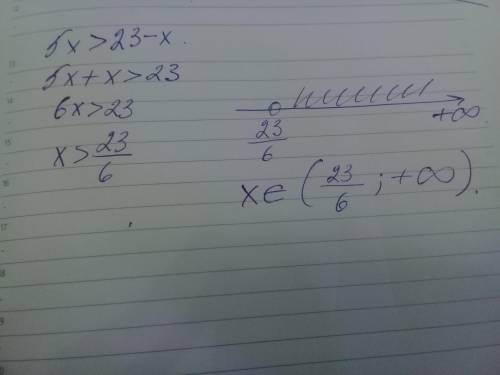 5x>23-x.
5x+x>23
6x>23
x>23/6
23/6
+∞
x∈(23/6;+∞).